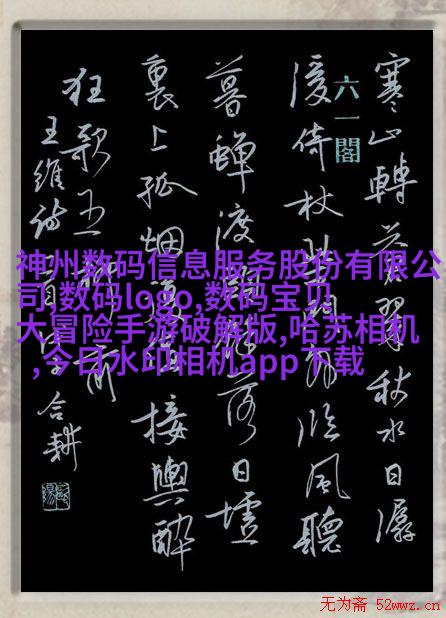 寒山轉蒼翠秋水日潺
六一閣
湲倚杖柴門外臨風聽
暮蟬渡頭餘落日墟
裏上孤烟復值接輿醉
狂歌五柳前
王維詩
合耕
神州数码信息服务股份有限公
司,数码logo,数码宝贝
大冒险手游破解版,哈苏相机
,今日水印相机app下载
无为斋 52wwz.cn